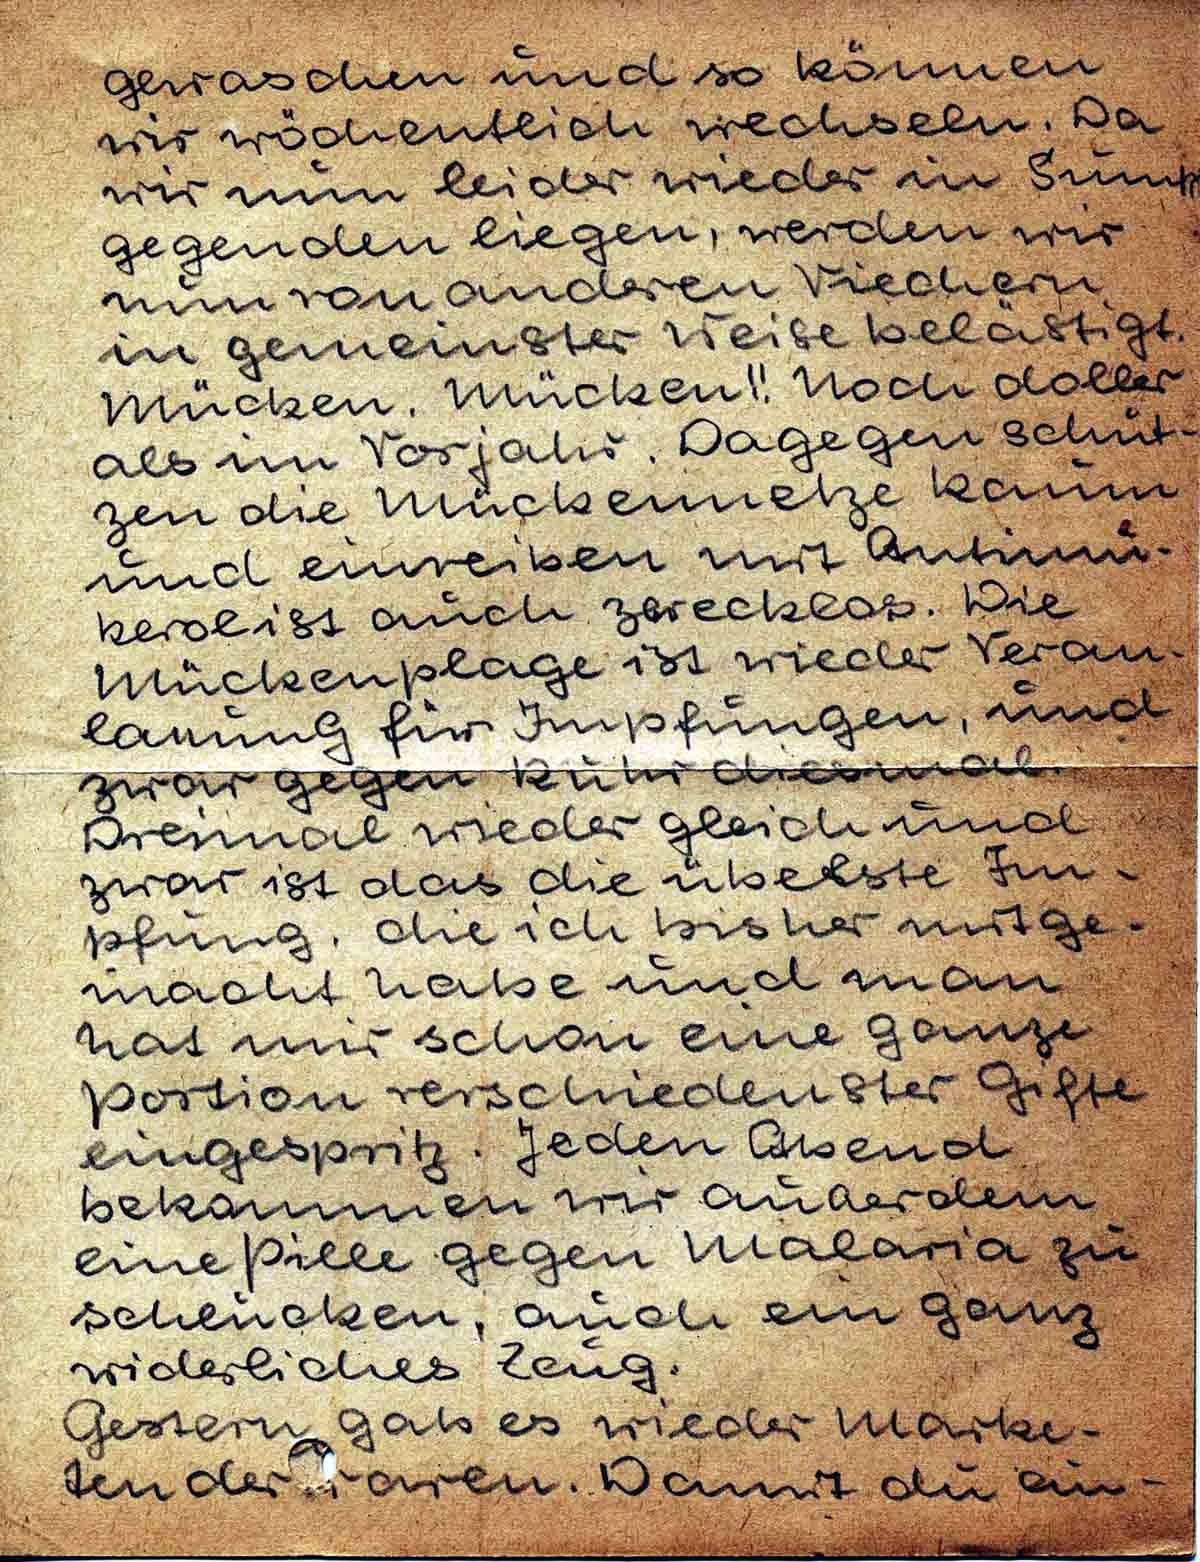 gewaschen und so können
wir wöchentlich wechseln. Da
wir nun leider wieder in Sump
gegenden liegen, werden wir
nun von anderen Viechern
in gemeinster Weise belästigt.
Mücken. Mücken!! Noch doller
als im Vorjahr. Dagegen schüt-
zen die Mückennetze kaum
und einreiben mit Antimü-
kerol ist auch zwecklos. Die
Mückenplage ist wieder Veran-
lassung für Impfungen, und
zwar gegen Ruhr diesmal.
Dreimal wieder gleich und
zwar ist das die übelste Im-
pfung, die ich bisher mitge-
macht habe und man
hat mir schon eine ganze
Portion verschiedenster Gifte
eingespritz. Jeden Abend
bekommen wir außerdem
eine Pille gegen Malaria zu
schlucken, auch ein ganz
widerliches Zeug.
Gestern gab es wieder Marke-
tenderwaren. Damit du ein-